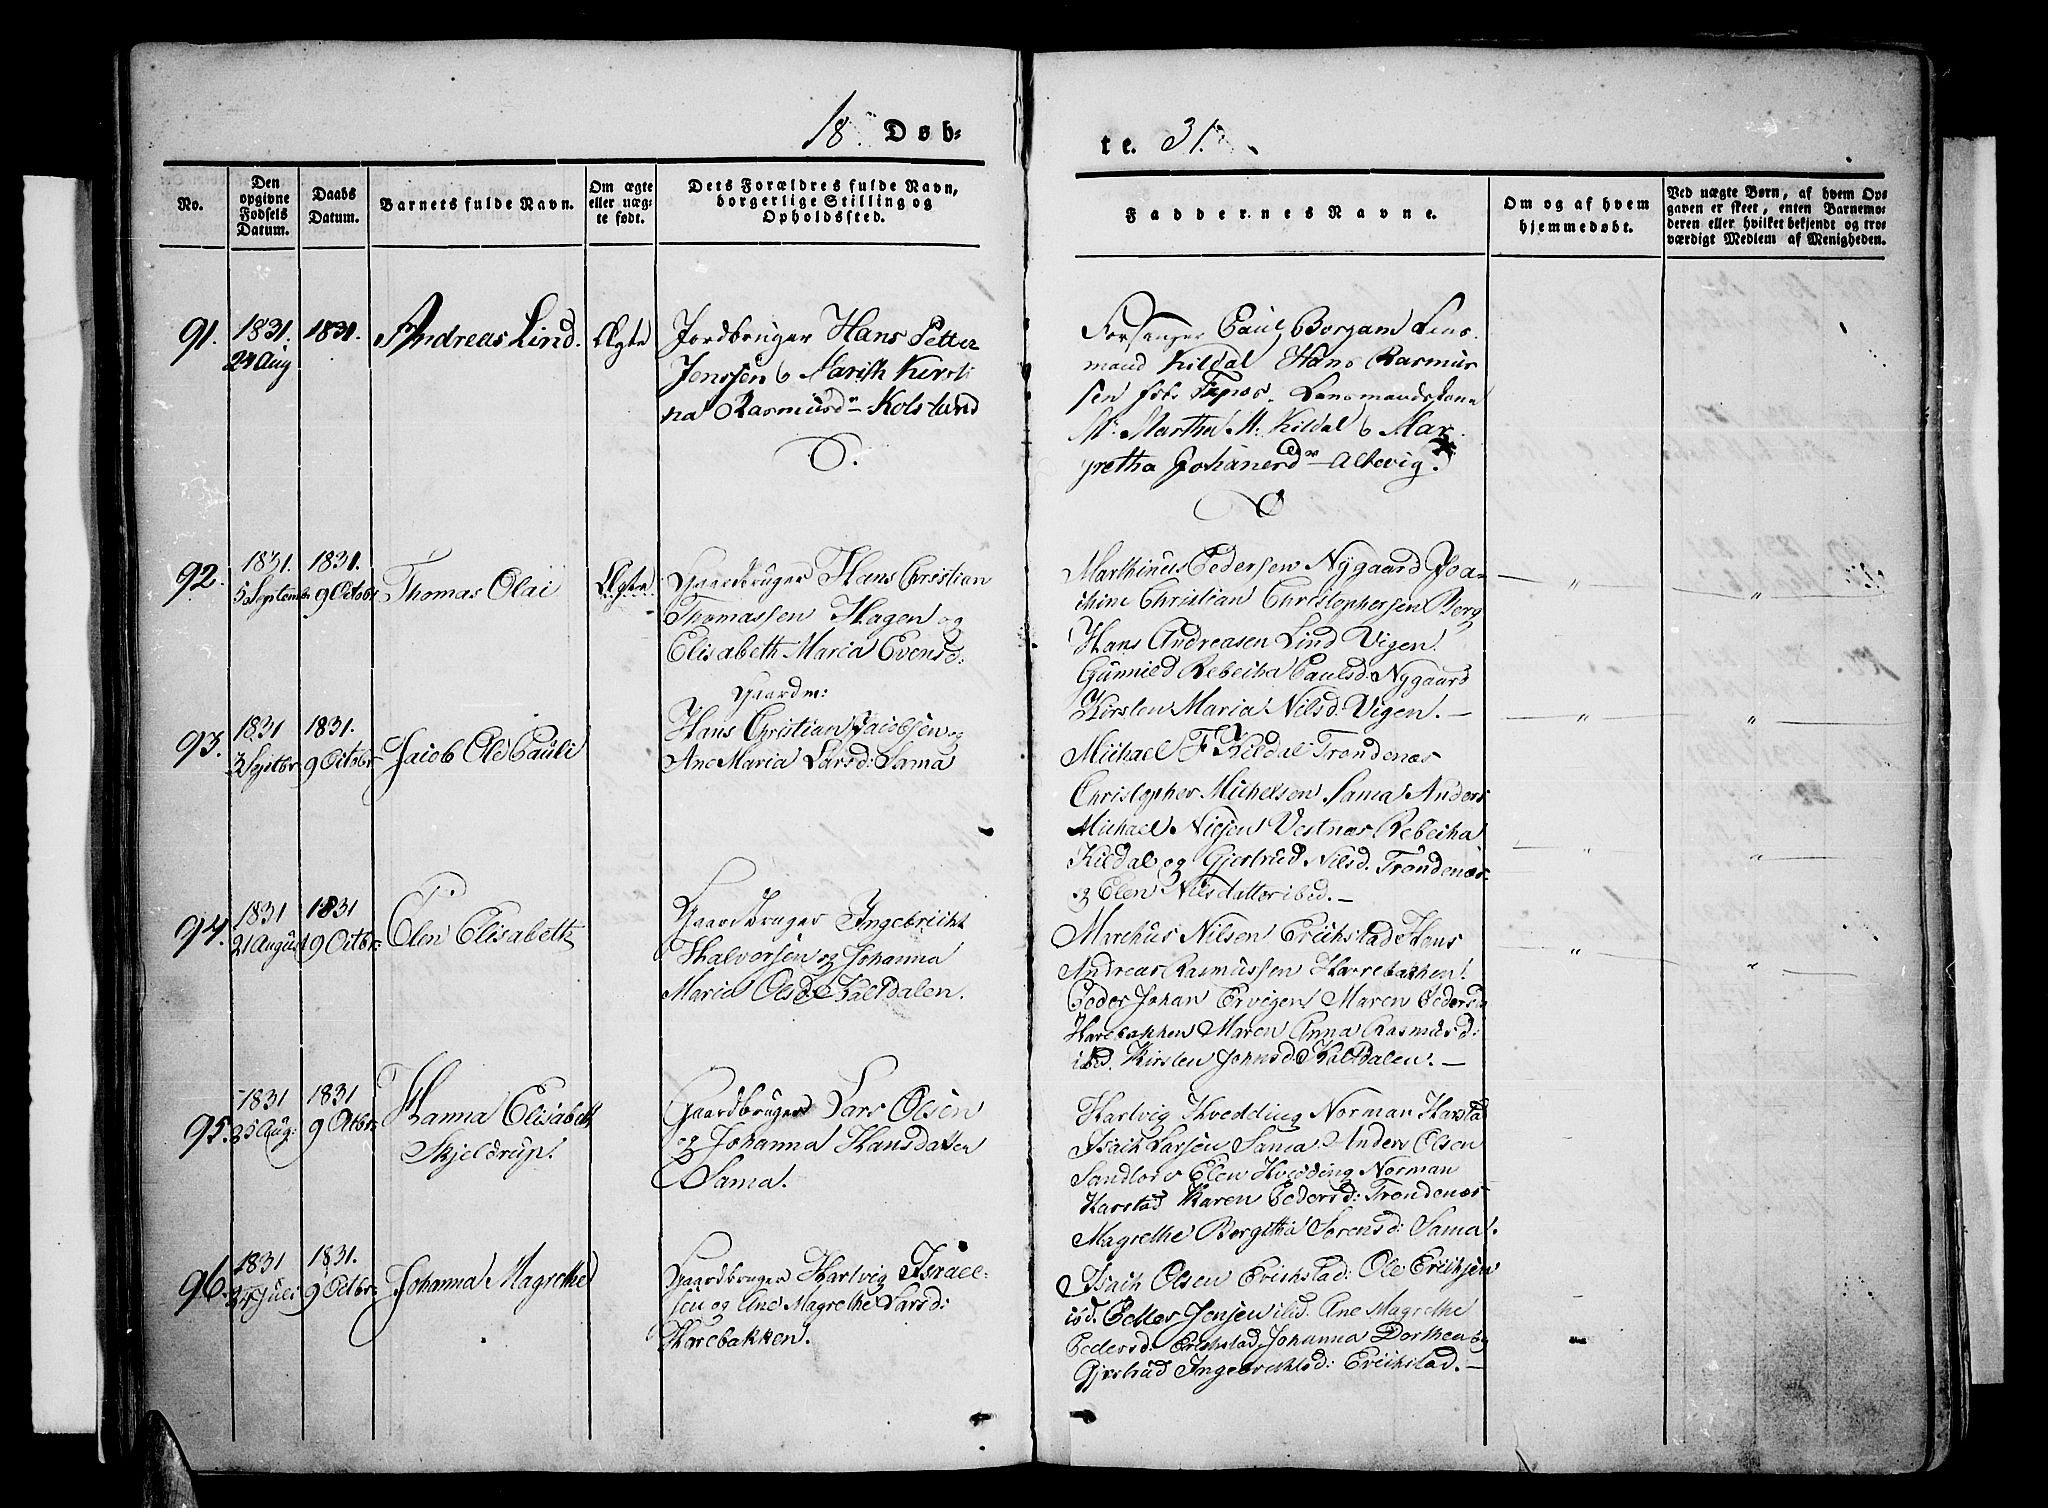 18 Døb-
te. 31.
No.
Den opgivne Fødsels Datum.
Daabs Datum.
Barnets fulde Navn.
Om ægte eller uægte født.
Dets Forældres fulde Navn, borgerlige Stilling og Opholdssted.
Faddernes Navne.
Om og af hvem hjemmedøbt.
Ved uægte Børn, af hvem Opgaven er skeet, enten Barnemoderen eller hvilket bekjendt og troværdigt Medlem af Menigheden.
91.
1831.
24 Aug
1831.
Andreas Lind.
Ægte
Jordbruger Hans Petter
Jenssen & Marith Kirsti
na Rasmusdr Kolsland
Forsanger Paul Borgam Lens
mand Kildal Hans Rasmus
sen Lensmandskone
Md Martha M: Kildal & Mar
gretha Johanesdr Altevig.
92.
1831.
5 Septembr
1831.
9 Octobr
Thomas Olai
Ægte
Gaardbruger Hans Christian
Thomassen Hagen og
Elisabeth Maria Evensd:
Marthinus Pedersen Nygaard Joa-
chim Christian Christophersen Berg
Hans Andreasen Lind Vigen.
Gunnild Rebecha Paulsd: Nygaard
Kirsten Maria Nilsd: Vigen. —
93.
1831
3 Septbr
1831.
9 Octobr
Jacob Ole Pauli
Gaardm:
Hans Christian Jacobsen og
Ane Maria Larsd: Sama
Michael F Kildal Trondenæs
Christopher Michelsen Sama Anders
Michael Nielsen Vestnæs Rebecha
Kildal og Gjertrud Nilsd. Trondenæs
og Elen Nilsdatter ibid. —
94.
1831
21 August
1831
9 Octbr
Elen Elisabeth
Gaardbruger Ingebricht
Halvorsen og Johanna
Maria Olsd: Kaltdalen.
Marchus Nilsen Erichstad Hans
Andreas Rasmussen Harrebachen.
Peder Johan Ervigen Maren Pedersd
Harebakken Maren Anna Rasmusd:
ibid. Kirsten Johnsd: Kaltdalen. —
95.
1831
25 Aug:
1831
9 Octbr
Hanna Elisabeth
Skjeldrup.
Gaardbruger Lars Olsen
og Johanna Hansdatter
Sama.
Hartvig Hvedding Norman Harstad
Isach Larsen Sama Anders Olsen
Sandtorv Elen Hvedding Norman
Harstad Karen Pedersd: Trondenæs
Magrethe Borgitha Sørensd: Sama.
96.
1831
Juli
1831.
9 Octbr
Johanna Magrethe
Gaardbruger Hartvig Israel-
sen og Ane Magrethe Larsd:
Harebakken.
Isach Olsen Erichstad: Ole Erichsen
ibd. Petter Jensen ibd. Ane Magrethe
Pedersd: Erichstad Johanna Dorthea og
Gjertrud Ingebrichtsd: Erichstad. —